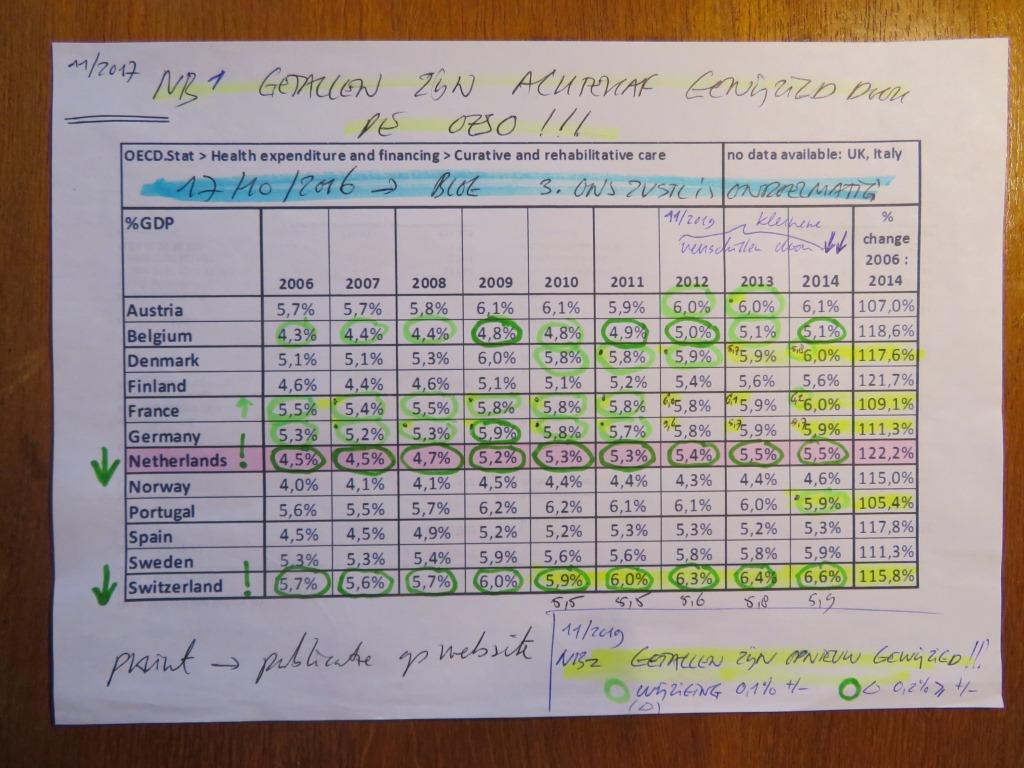 11/2017
NB1 GETALLEN ZIJN ACHTERAF GEWIJZIGD DOOR
DE OESO !!!
OECD.Stat > Health expenditure and financing > Curative and rehabilitative care no data available: UK, Italy
17/10/2016 → BLOG 3. ONS ZORGSTELSEL IS ONDOELMATIG
11/2019 kleinere
verschillen door ↓↓
%GDP 2006 2007 2008 2009 2010 2011 2012 2013 2014 % change 2006 : 2014
Austria 5,7% 5,7% 5,8% 6,1% 6,1% 5,9% 6,0% 6,0% 6,1% 107,0%
Belgium 4,3% 4,4% 4,4% 4,8% 4,8% 4,9% 5,0% 5,1% 5,1% 118,6%
Denmark 5,1% 5,1% 5,3% 6,0% 5,8% 5,8% 5,9% 5,7 5,9% 5,8 6,0% 117,6%
Finland 4,6% 4,4% 4,6% 5,1% 5,1% 5,2% 5,4% 5,6% 5,6% 121,7%
France ↑ 5,5% 5,4% 5,5% 5,8% 5,8% 5,8% 6,0 5,8% 6,1 5,9% 6,2 6,0% 109,1%
Germany 5,3% 5,2% 5,3% 5,9% 5,8% 5,7% 5,6 5,8% 5,7 5,9% 5,7 5,9% 111,3%
↓ Netherlands ! 4,5% 4,5% 4,7% 5,2% 5,3% 5,3% 5,4% 5,5% 5,5% 122,2%
Norway 4,0% 4,1% 4,1% 4,5% 4,4% 4,4% 4,3% 4,4% 4,6% 115,0%
Portugal 5,6% 5,5% 5,7% 6,2% 6,2% 6,1% 6,1% 6,0% 5,9% 105,4%
Spain 4,5% 4,5% 4,9% 5,2% 5,2% 5,3% 5,3% 5,2% 5,3% 117,8%
Sweden 5,3% 5,3% 5,4% 5,9% 5,6% 5,6% 5,8% 5,8% 5,9% 111,3%
↓ Switzerland ! 5,7% 5,6% 5,7% 6,0% 5,9% 6,0% 6,3% 6,4% 6,6% 115,8%
5,5 5,5 5,6 5,8 5,9
print → publicatie op website
11/2019
NB2 GETALLEN ZIJN OPNIEUW GEWIJZIGD!!
WIJZIGING 0,1% +/-
(△)
△ 0,2% ≥ +/-